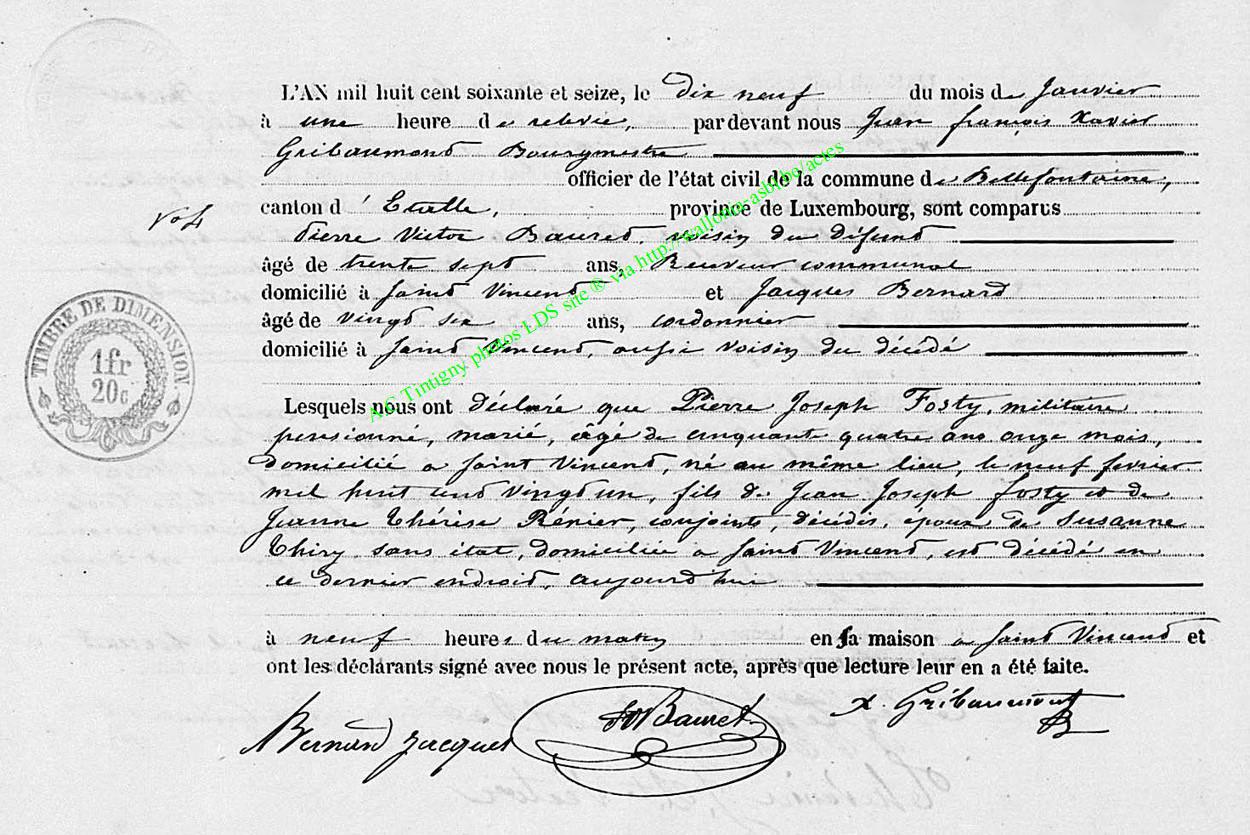 L'AN mil huit cent soixante et seize, le dix neuf du mois de Janvier
à une heure de relevée, pardevant nous Jean françois Xavier
Gribaumont Bourgmestre
officier de l'état civil de la commune de Bellefontaine,
canton d'Etalle, province de Luxembourg, sont comparus
N° 4
Pierre Victor Bauret, voisin du défunt
âgé de trente sept ans, Receveur communal
domicilié à Saint Vincent et Jacques Bernard
âgé de vingt six ans, cordonnier
domicilié à Saint Vincent, aussi voisin du décédé
TIMBRE DE DIMENSION
1fr
20c
Lesquels nous ont déclaré que Pierre Joseph Fosty, militaire
pensionné, marié, âgé de cinquante quatre ans onze mois,
domicilié à Saint Vincent, né au même lieu, le neuf fevrier
mil huit cent vingt un, fils de Jean Joseph fosty et de
Jeanne Thérèse Rénier, conjoints, décédés, époux de Susanne
Thiry, sans état, domiciliée à Saint Vincent, est décédé en
ce dernier endroit, aujourd'hui
à neuf heures du matin en sa maison à Saint Vincent et
ont les déclarants signé avec nous le présent acte, après que lecture leur en a été faite.
Bernard Jacques Bauret X. Gribaumont
A.C. Tintigny photos LDS site ® via http://wallonia-asbl.be/actes